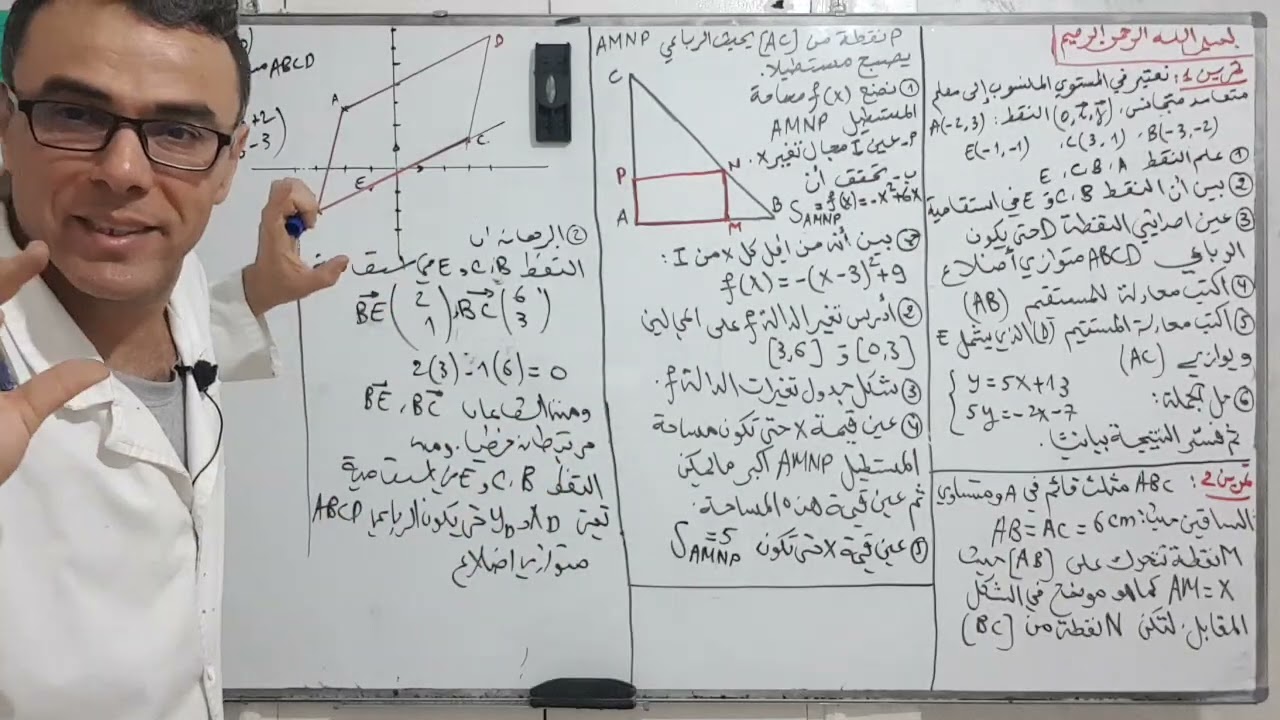 بسم الله الرحمن الرحيم
تمرين 1: نعتبر في المستوي المنسوب إلى معلم
متعامد متجانس (O, i, j) النقط: A(-2,3)
E(-1,-1) ، C(3,1) ، B(-3,-2)
① علم النقط A، B، C، E
② بين أن النقط B، C و E في استقامية
③ عين احداثيتي النقطة D حتى يكون
الرباعي ABCD متوازي أضلاع
④ اكتب معادلة للمستقيم (AB)
⑤ اكتب معادلة المستقيم (Δ) الذي يشمل E
ويوازي (AC)
⑥ حل الجملة: { y = 5x+13
5y = -2x-7
ثم فسّر النتيجة بيانيا.
تمرين 2: ABC مثلث قائم في A ومتساوي
الساقين حيث: AB = AC = 6cm
M نقطة تتحرك على [AB] حيث
AM = x كما هو موضح في الشكل
المقابل. لتكن N نقطة من [BC]
P نقطة من [AC] بحيث الرباعي AMNP
يصبح مستطيلا.
① نضع f(x) مساحة
المستطيل AMNP
أ- عين I مجال تغير x.
ب- تحقق أن
S_AMNP = f(x) = -x²+6x
C
P
N
A
M
B
بين أنه من اجل كل x من I:
f(x) = -(x-3)²+9
② أدرس تغير الدالة f على المجالين
[0,3] و [3,6]
③ شكل جدول تغيرات الدالة f.
④ عين قيمة x حتى تكون مساحة
المستطيل AMNP أكبر ما يمكن
ثم عين قيمة هذه المساحة.
⑤ عين قيمة x حتى تكون S_AMNP = 5
ABCD
+2
-3
A
D
C
E
② البرهان أن
النقط B، C و E في
BE(2 1) ، BC(6 3)
2(3) - 1(6) = 0
ومنه الشعاعان BC، BE
مرتبطان خطيا. ومنه
النقط B، C و E في استقامية
تعيين x_D و y_D حتى يكون الرباعي ABCD
متوازي اضلاع